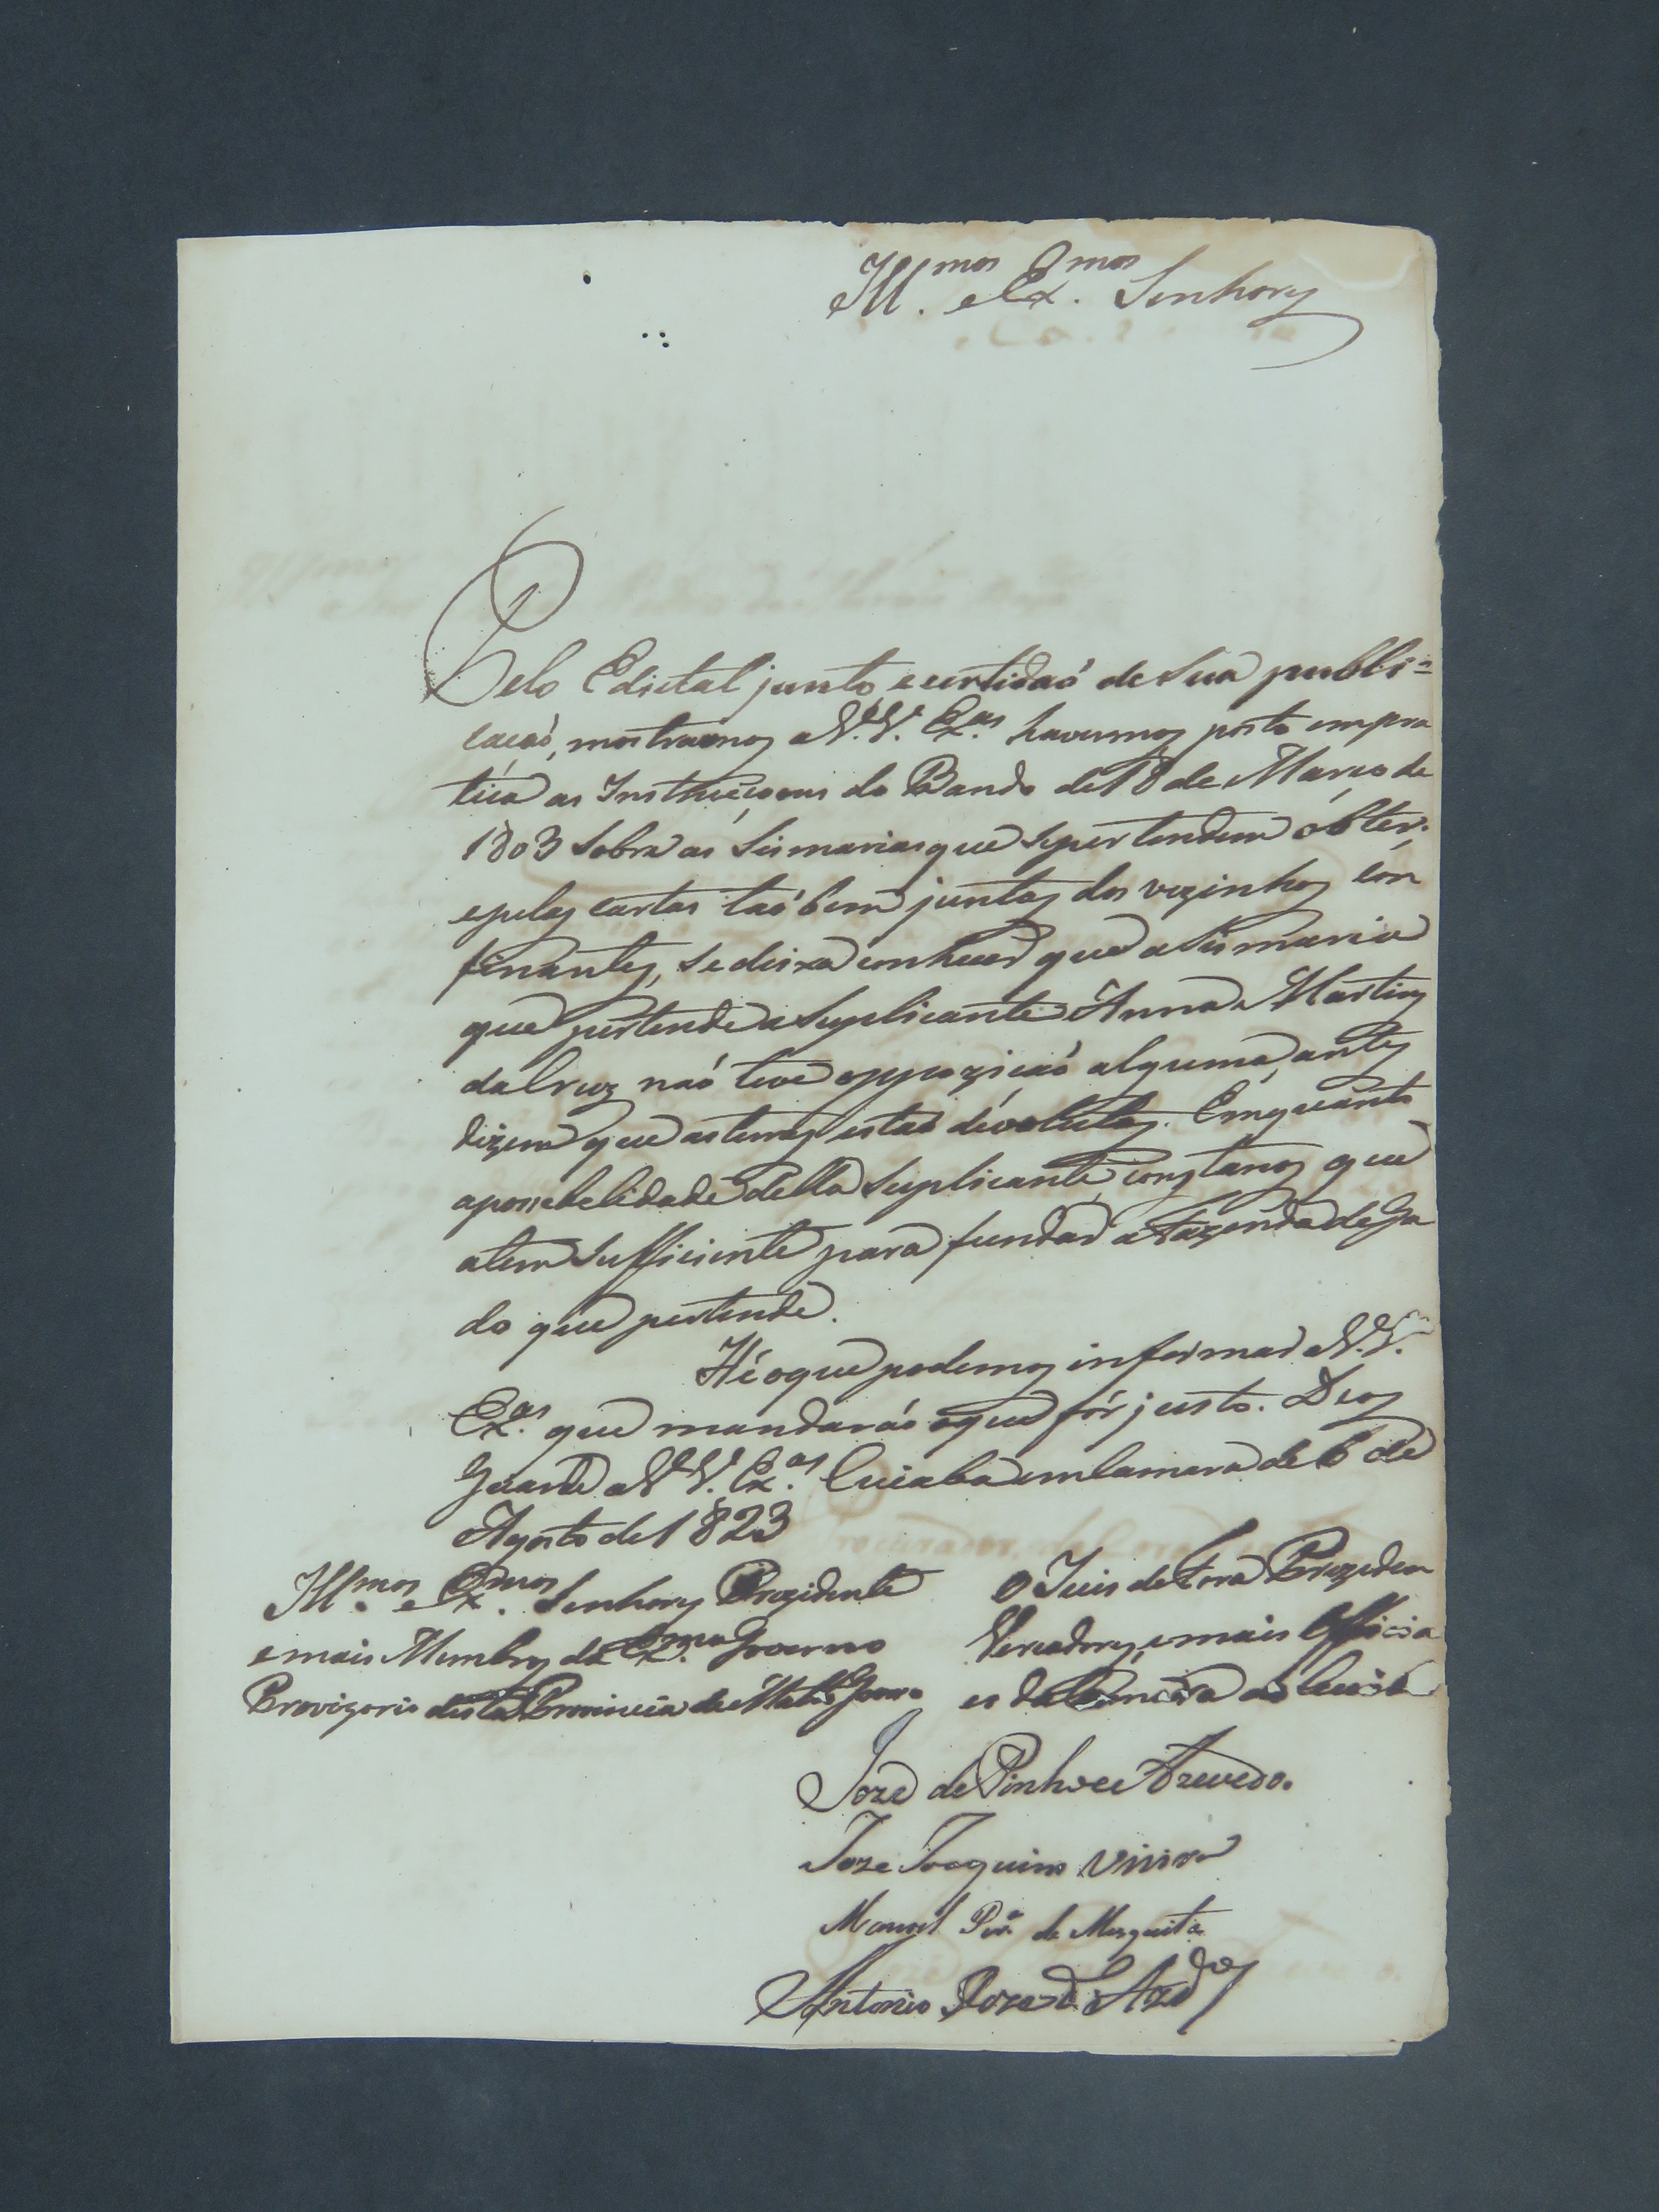 Ill.mos e Ex.mos Senhores
Pelo Edictal junto, e certidaõ de sua publi=
caçaõ, mostramos a V.V. Ex.as havermos posto em pra
tica as Instrucçoens do Bando de 18 de Março de
1803 sobre as Sismarias que se pertendem obter:
e pelas cartas taõbem juntas dos vezinhos con
finantes, se deixa conhecer que a Sismaria
que pertende a Suplicante Anna Martins
da Cruz naõ teve oppoziçaõ alguma, antes
dizem que as terras estaõ devolutas. Emquanto
a possebelidade della Suplicante, constanos que
a tem sufficiente para fundar a Fazenda de Ga
do que pertende.
He o que podemos informar a V.V.
Ex.as que mandaráõ o que fôr justo. Deos
Guarde a V.V. Ex.as Cuiabá em Camara de 6 de
Agosto de 1823
Ill.mos e Ex.mos Senhores Prezidente
e mais Membros do Ex.mo Governo
Provizorio desta Provincia de Matto Grosso
O Juis de Fora Prezeden
Vereadores, e mais Officia
es da Camara do Cuiabá
Joze de Pinho e Azevedo.
Joze Joaquim Vieira
Manoel Per.a de Mesquita
Antonio Joze de Azd.o